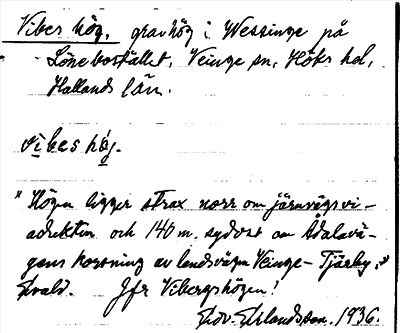 Vibes hög, gravhög i Wessinge på
Lönebostället, Veinge sn, Höks hd,
Hallands län.
vibes hög.
"Högen ligger strax norr om järnvägsvi-
adukten och 140 m. sydost om Ådalavä-
gens korsning av landsvägen Veinge–Tjärby,"
kvald. Jfr Vibergshögen!
Edv. Erlandsson. 1936.